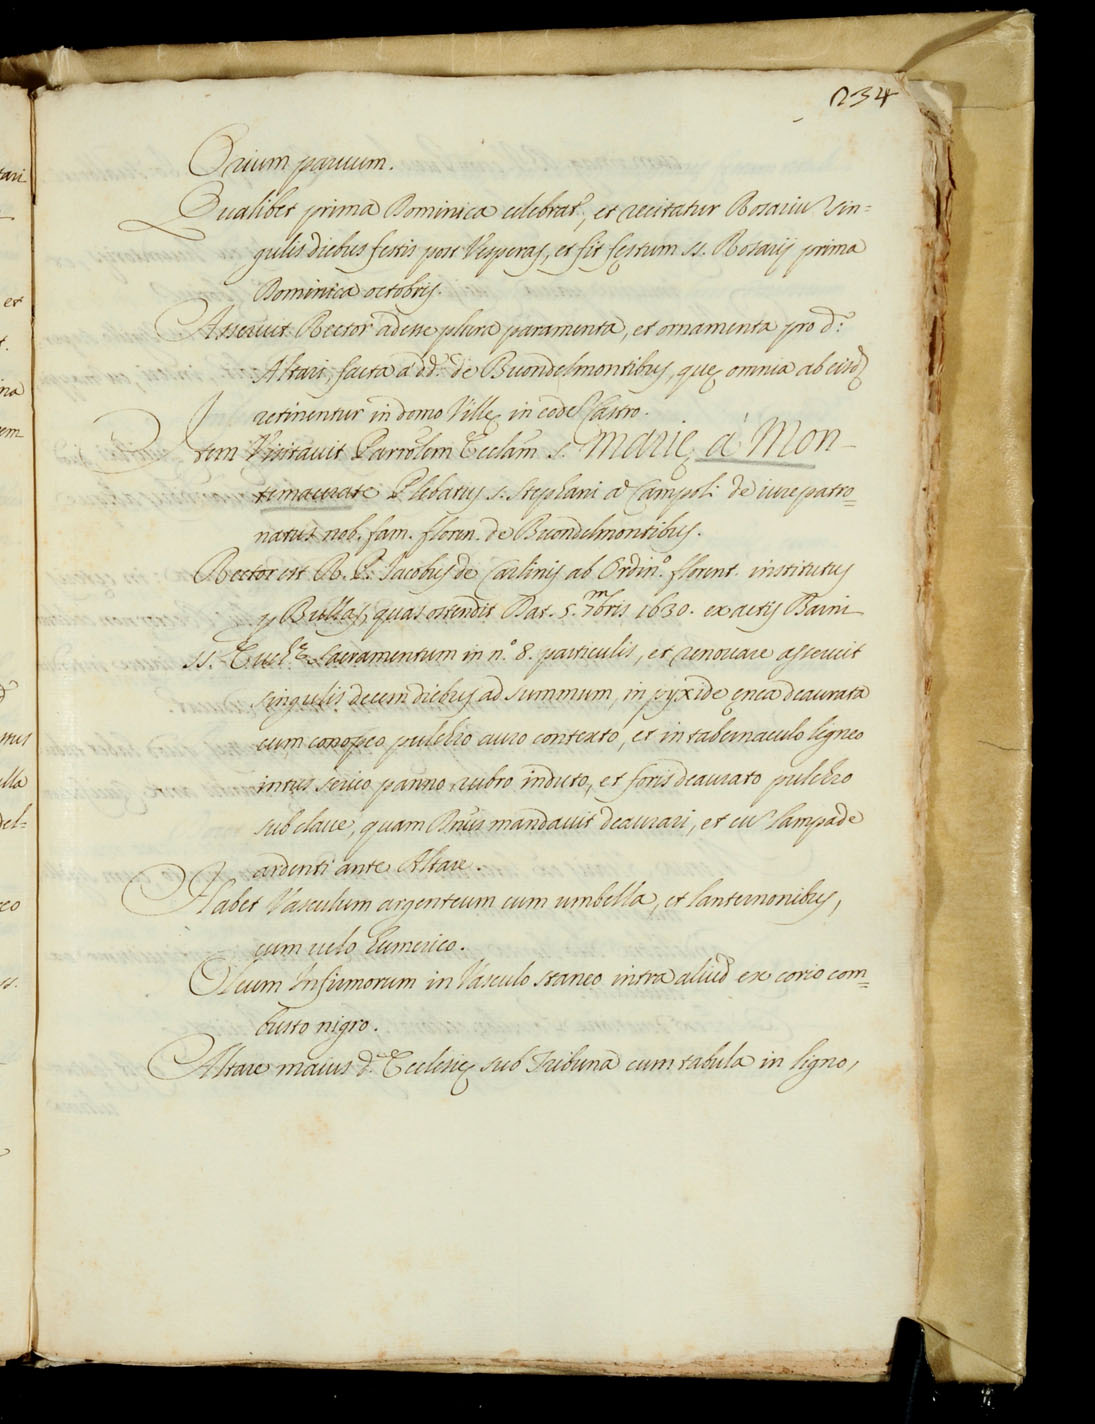 234
Orium paruum.
Qualibet prima Dominica celebrat.r, et recitatur Rosariũ sin=
gulis diebus festis post Vesperas, et fit festum SS. Rosarij prima
Dominica octobris.
Asseruit Rector adesse plura paramenta, et ornamenta pro d:
Altari, facta a dd. de Buondelmontibus, quę omnia ab eisd
retinentur in domo Villę in eode Castro.
Item Visitauit Parrōlem Ecclām S. Marię à Mon-
temacerate Plebatus S. Stephani a Campoli de iure patro=
natus nob. fam. floren. de Buondelmontibus.
Rector est R. P. Jacobus de Carlinis ab Ordin.º florent. institutus
p Bullas, quas ostendit Dat. 5. 7mbris 1630. ex actis Barni
SS. Euch.ę Sacramentum in n.º 8. particulis, et renouare asseruit
singulis decem diebus ad summum, in pyxide ęnea deaurata
cum conopeo pulchro auro contexto, et in tabernaculo ligneo
intus serico panno rubro induto, et foris deaurato pulchro
sub claue, quam Dnus mandauit deaurari, et cũ lampade
ardenti ante Altare.
Habet Vasculum argenteum cum umbella, et lanternonibus,
cum uelo humerico.
Oleum Infirmorum in Vasculo staneo intra aliud ex corio com=
busto nigro.
Altare maius d. Ecclesię sub Tribuna cum tabula in ligno,